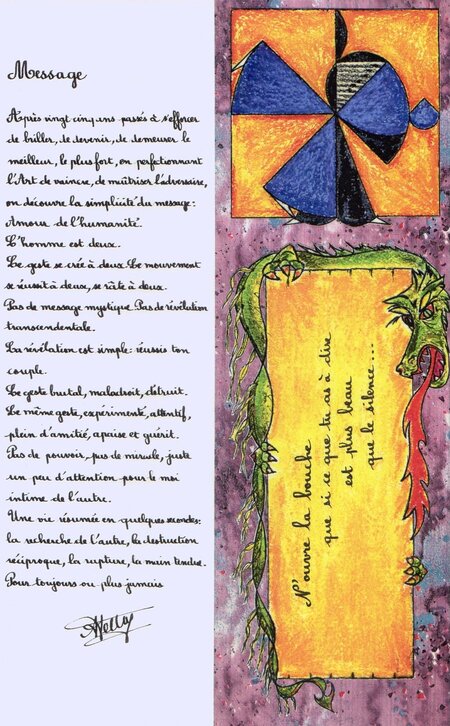 Message
Après vingt cinq ans passés à s'efforcer
de briller, de devenir, de demeurer le
meilleur, le plus fort, en perfectionnant
l'Art de vaincre, de maîtriser l'adversaire,
on découvre la simplicité du message:
Amour de l'humanité.
L'homme est deux.
Le geste se crée à deux. Le mouvement
se réussit à deux, se râte à deux.
Pas de message mystique. Pas de révélation
transcendentale.
La révélation est simple: réussis ton
couple.
Le geste brutal, maladroit, détruit.
Le même geste, expérimenté, attentif,
plein d'amitié, apaise et guérit.
Pas de pouvoir, pas de miracle, juste
un peu d'attention pour le moi
intime de l'autre.
Une vie résumée en quelques secondes:
la recherche de l'autre, la destruction
réciproque, la rupture, la main tendue.
Pour toujours ou plus jamais
N'ouvre la bouche
que si ce que tu as à dire
est plus beau
que le silence...